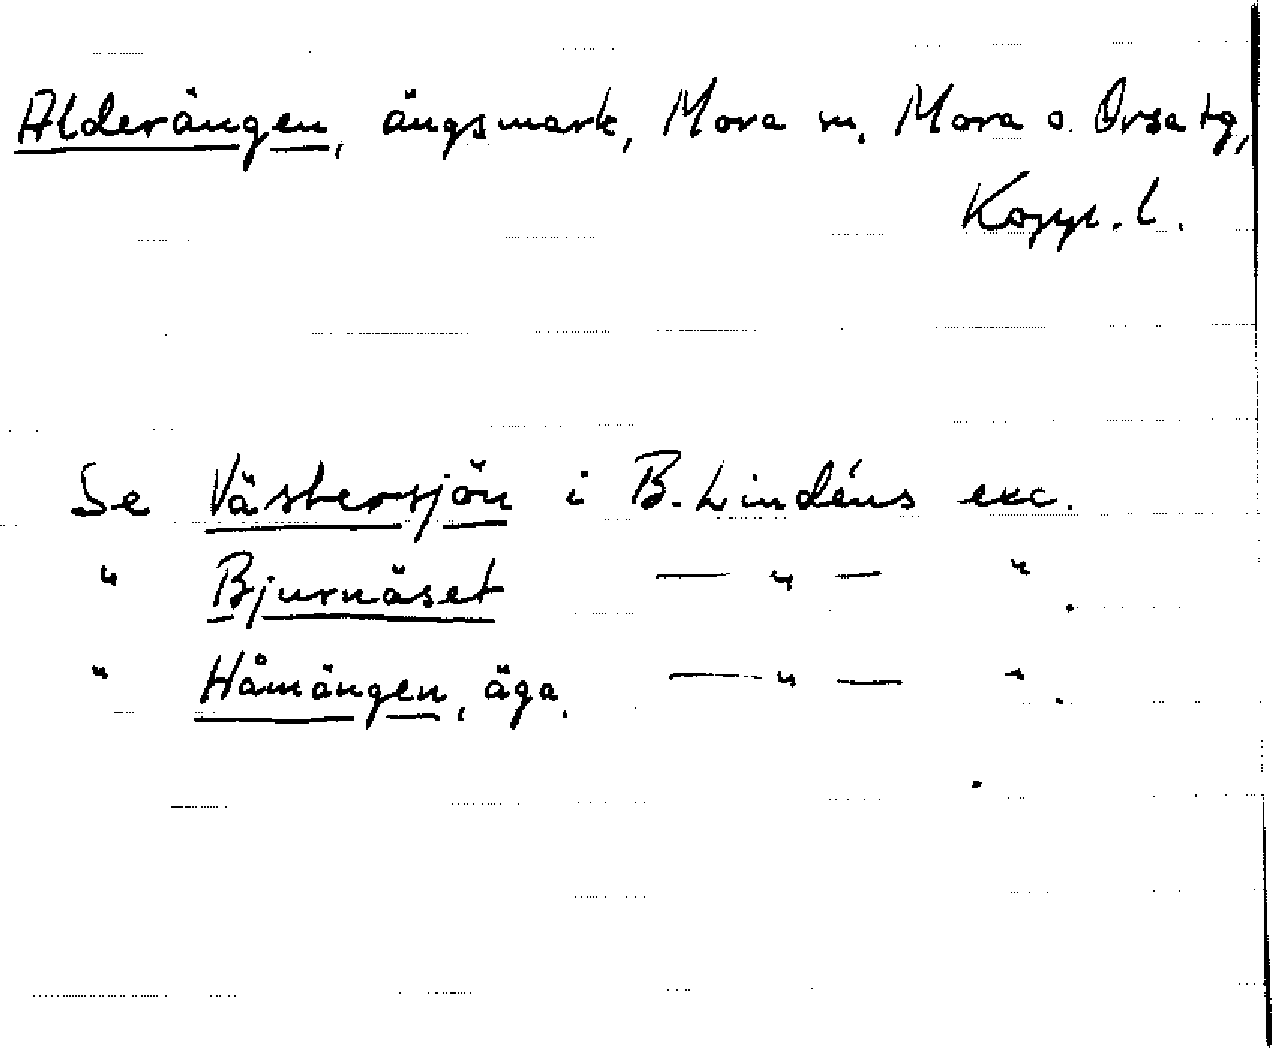 Alderängen, ängsmark, Mora sn, Mora o. Orsa tg,
Kopp. l.
Se Västersjön i B. Lindéns exc.
" Bjurnäset — " — " .
" Håmängen, äga, — " — " .